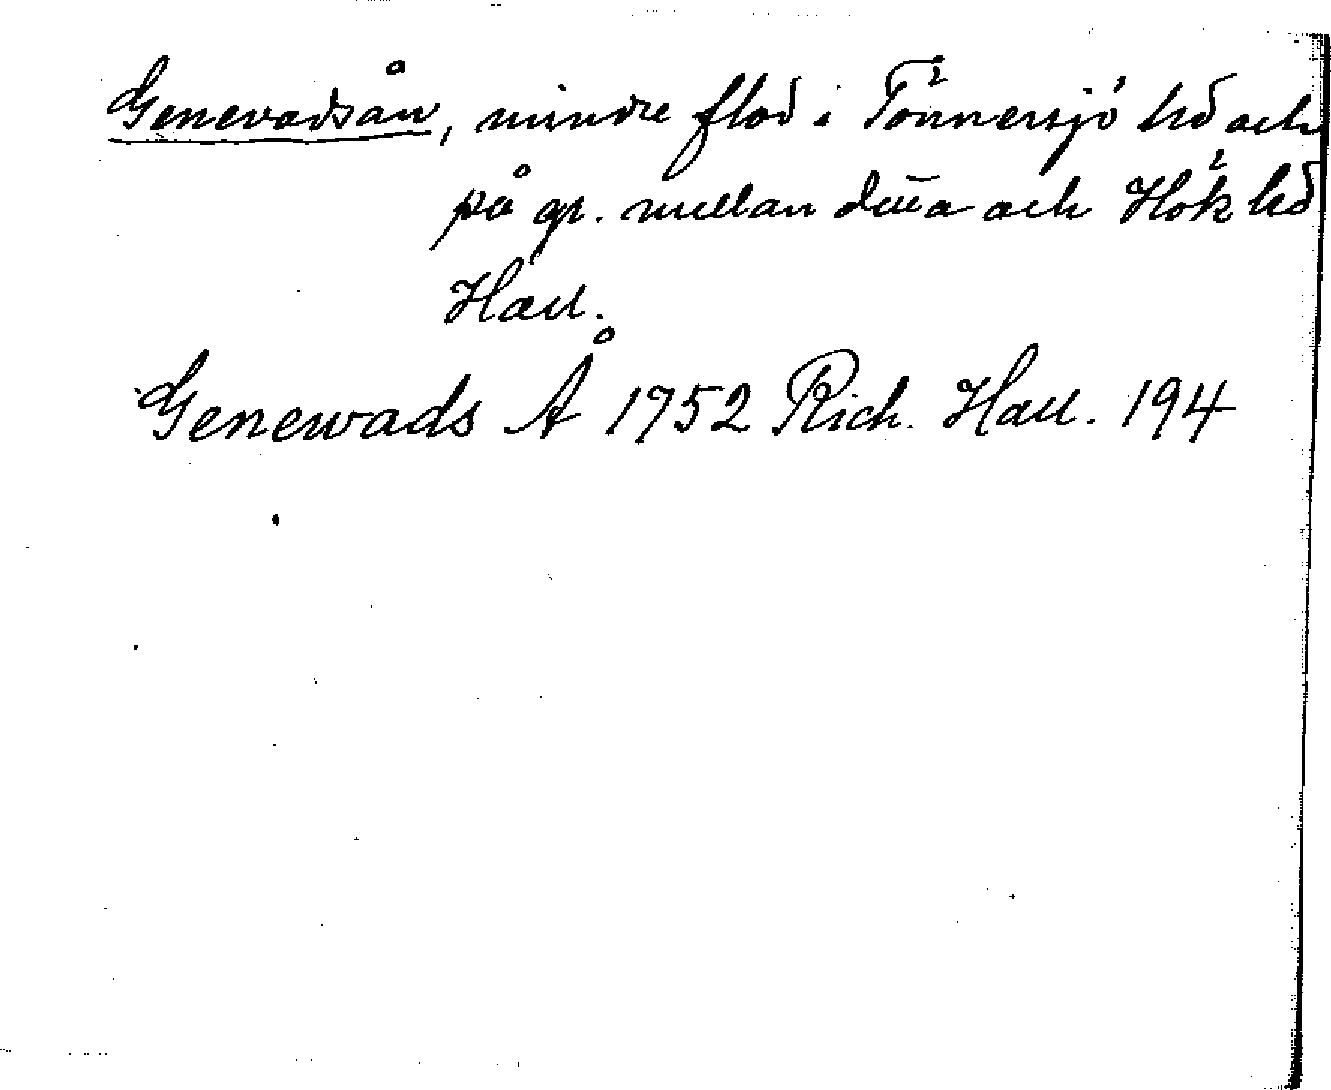 Genevadsån, mindre flod i Tönnersjö hd och
på gr. mellan detta och Hök hd
Hall.
Genewads Å 1752 Rich. Hall. 194